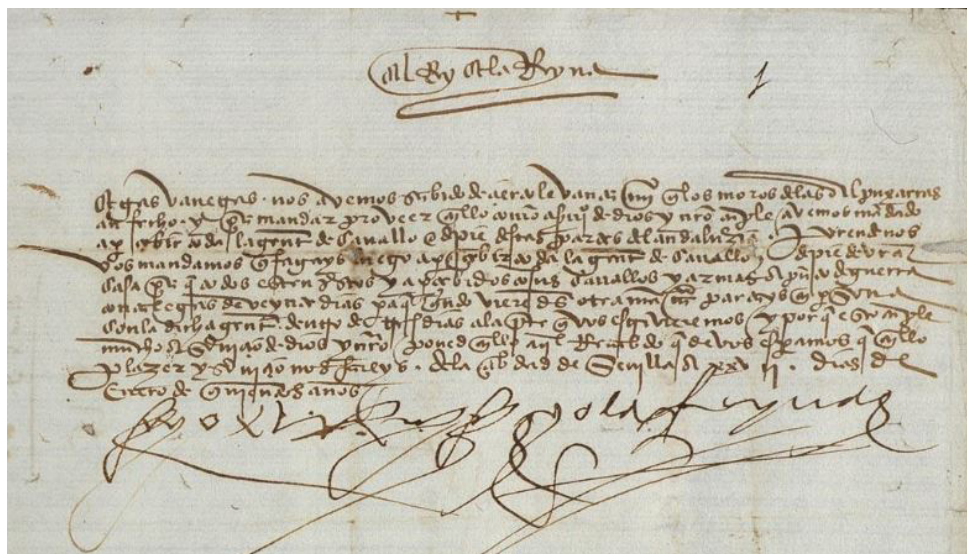 El Rey e la Reyna
1
Egas vanegas. nos avemos sabido de cierto levanta q los moros de las Alpuxarras
an fecho. y pa mandar proveer en ello como a s de dios y nro cumple avemos mandado
apercebir toda la gente de cavallo e de pie destas partes del andaluzia. Por ende nos
vos mandamos q fagays luego apercebir toda la gente de cavallo e de pie de vra
Casa pa q todos esten prestos y apercebidos con sus cavallos y armas a punto de guerra
con talegas de veynte dias pa q quando vierdes otra nra carta partays en persona
Con la dicha gente dentro de tres dias a la parte q vos escrivieremos y porq esto cumple
mucho a servicio de dios y nro poned en ello aql Recabdo q de vos esperamos q en ello
plazer y servicio nos fareys. de la cibdad de Sevilla a xxvii. dias de
Enero de quinientos años
yo el Rey yo la Reyna